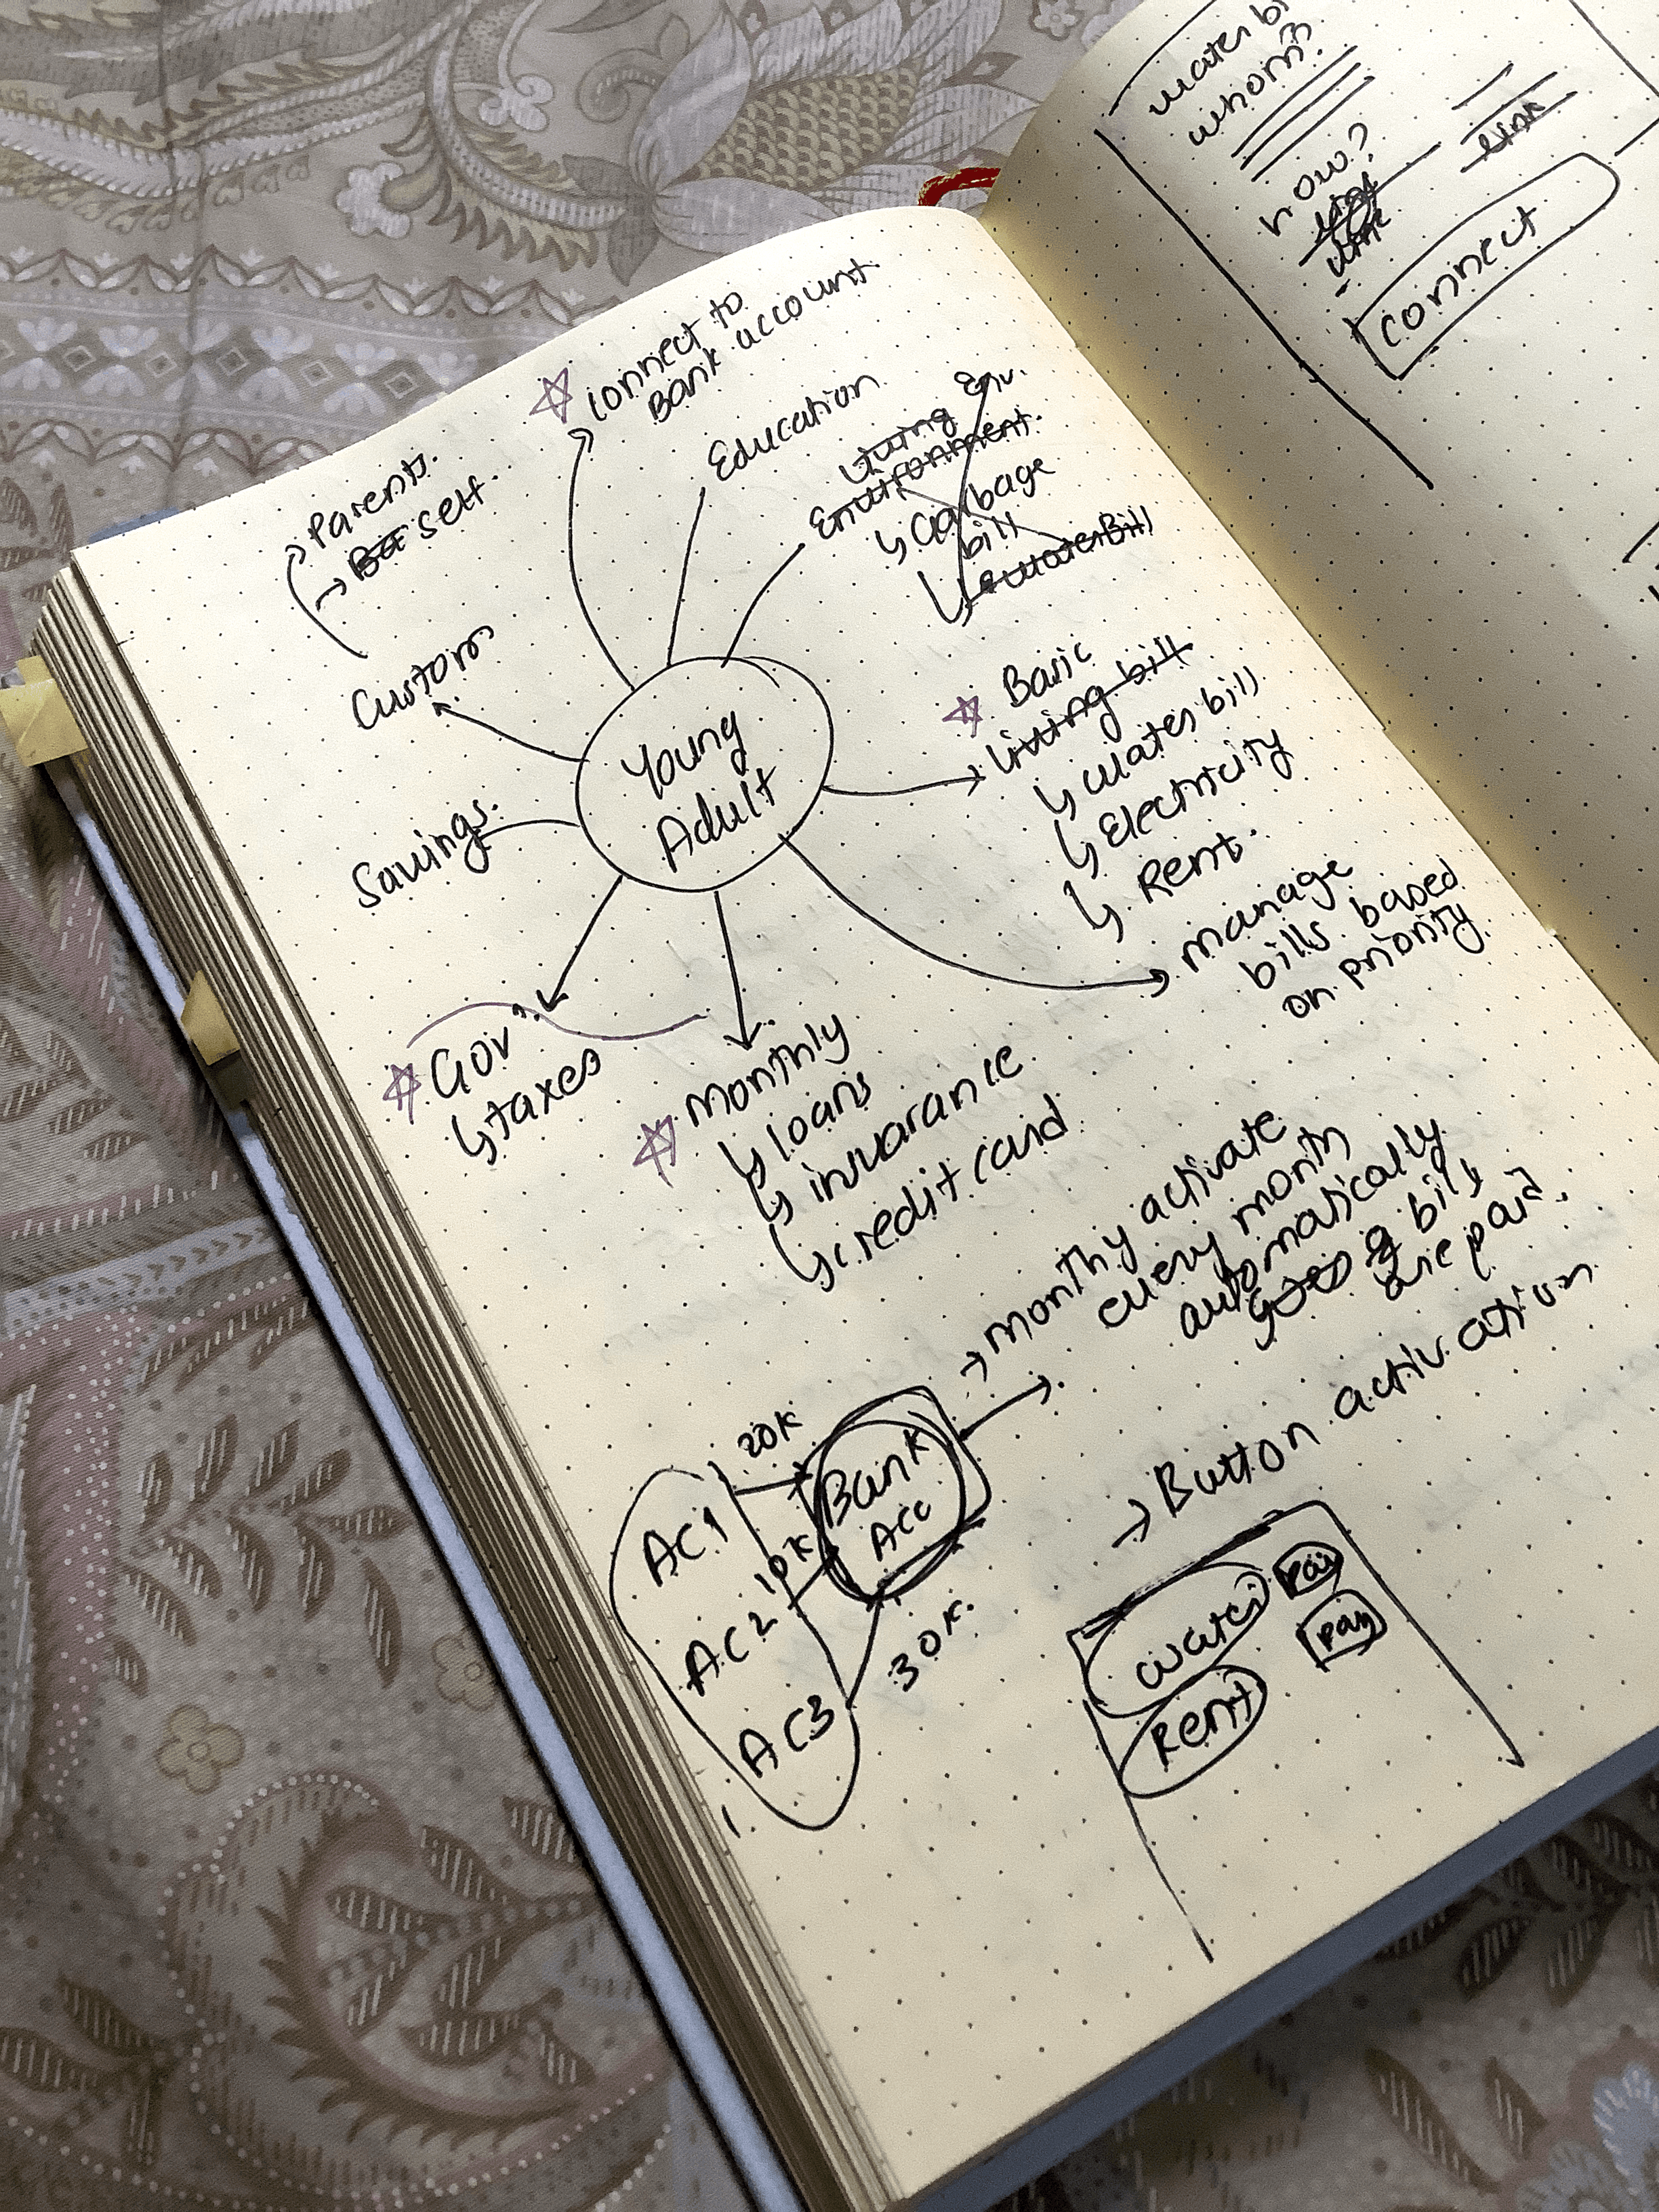 connect to
Bank account
Education
Living Env.
Environment.
Garbage
bill
Water Bill
Parents.
self.
Custom
Young
Adult
Savings.
Basic
Living bill
water bill
Electricity
Rent.
manage
bills based
on priority
Gov
taxes
monthly
loans
insurance
credit card
monthly activate
every month
automatically
bills
are paid.
Button activation
20K
Bank
Acc
AC1
10K
AC2
30K.
AC3
water
pay
Rent
pay
water bi
whom?
how?
link
connect